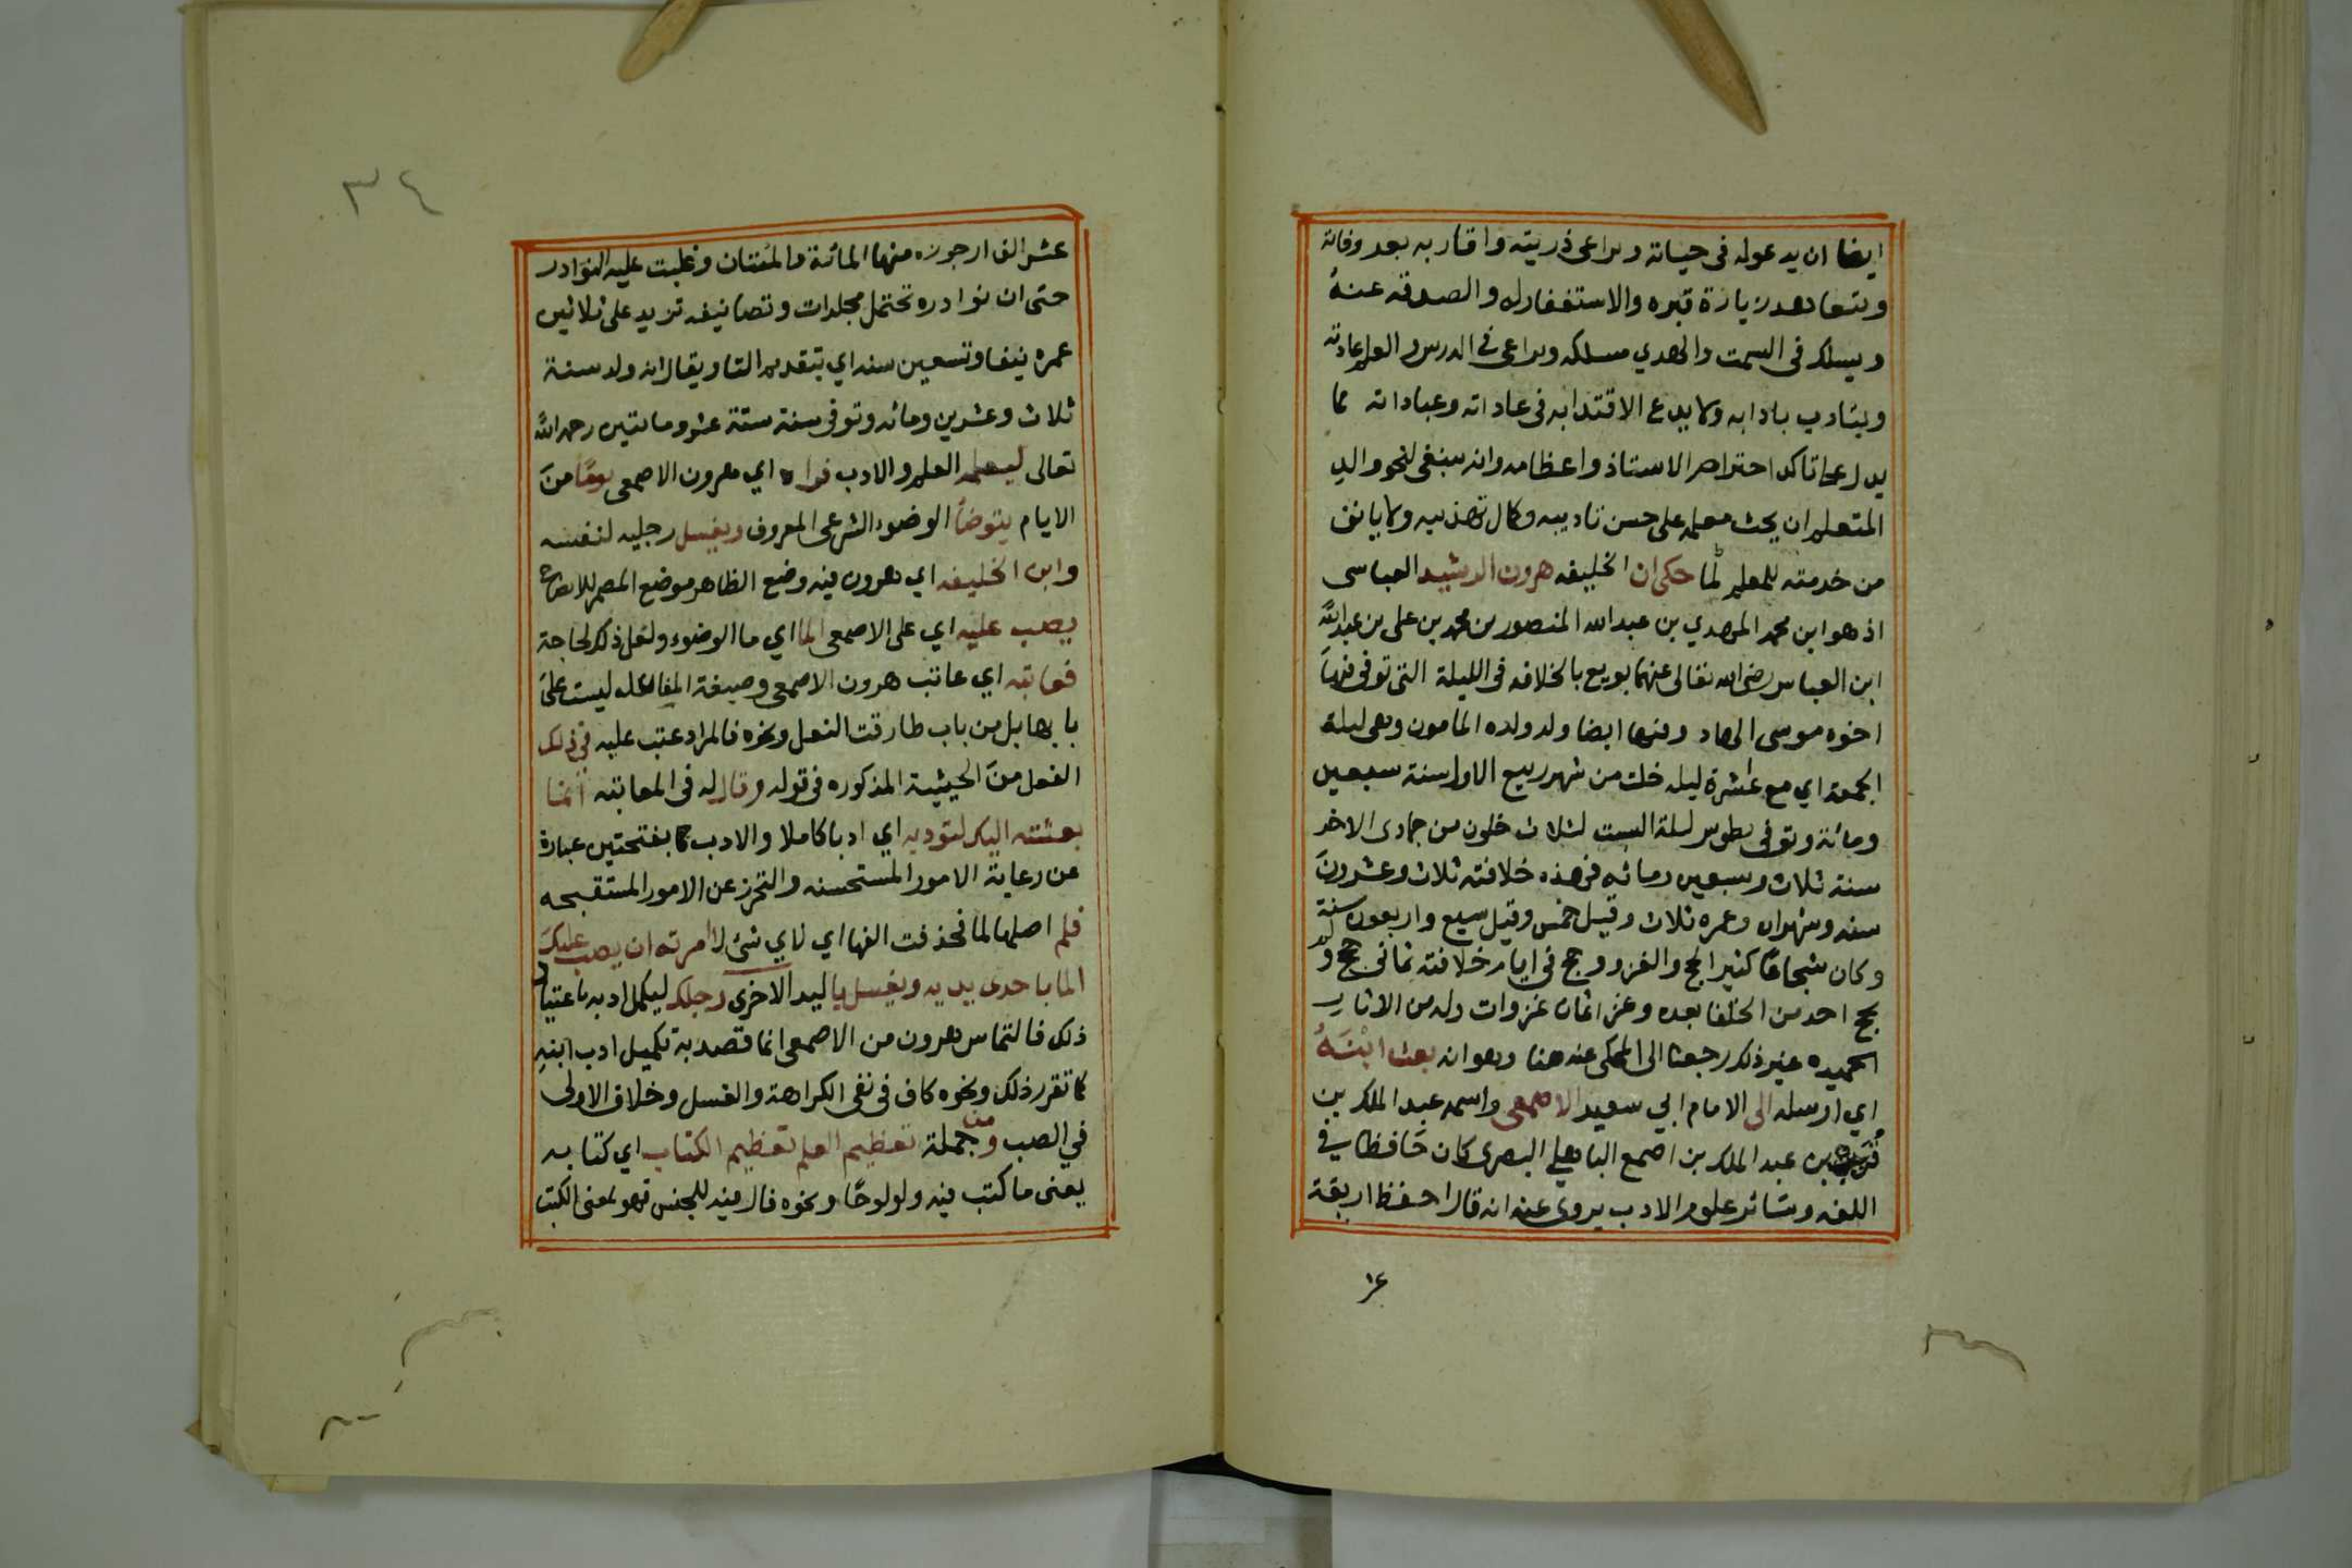 ايضا ان يدعو له في حياته ويراعي ذريته واقاربه بعد وفاته
ويتعاهد زيارة قبره والاستغفار له والصدقه عنهُ
ويسلك في السمت والهدي مسلكه ويراعي في الدرس والعلم عادته
ويتادب بادابه ولا يدع الاقتدا به في عاداته وعباداته مما
يدل على تاكد احترام الاستاذ واعظامه وانه ينبغي لنحو والد
المتعلم ان يحث معلمه على حسن تاديبه وكمال تهذيبه ولا يانف
من خدمته للمعلم لما حكي ان الخليفه هرون الرشيد العباسي
اذ هو ابن محمد المهدي بن عبد الله المنصور بن محمد بن علي بن عبد الله
ابن العباس رضي الله تعالى عنهما بويع بالخلافه في الليلة التي توفي فيها
اخوه موسى الهاد وفيها ايضا ولد ولده المامون وهي ليلة
الجمعه اي مع عشرة ليله خلت من شهر ربيع الاول سنة سبعين
ومائة وتوفي بطوس ليلة السبت لثلاث خلون من جمادى الاخر
سنة ثلاث وسبعين ومائه فهذه خلافته ثلاث وعشرون
سنه وشهران وعمره ثلاث وقيل خمس وقيل سبع واربعون سنة
وكان شجاعًا كثير الحج والغزو وحج في ايام خلافته ثماني حجج ولم
يحج احد من الخلفا بعده وغزا ثمان غزوات وله من الاثار
الحميده غير ذلك رجعنا الى المحكي عنه هنا وهو انه بعث ابْنَهُ
اي ارسله الى الامام ابي سعيد الاصمعي واسمه عبد الملك بن
قُرَيب بن عبد الملك بن اصمع الباهلي البصري كان حَافظا في
اللغه وسَائر علوم الادب يروى عنه انه قال احفظ اربعة
عش
٣٤
عشر الف ارجوزه منها المائة والمئتان وغلبت عليه النوادر
حتى ان نوادره تحتمل مجلدات وتصانيفه تزيد على ثلاثين
عمره نيفا وتسعين سنه اي بتقديم التا ويقال انه ولد سنة
ثلاث وعشرين ومائه وتوفي سنة ستة عشر ومائتين رحمه الله
تعالى ليعلمه العلم والادب فراه اي هرون الاصمعي يومًا منَ
الايام يتوضأ الوضوء الشرعي المعروف ويغسل رجليه لنفسه
وابن الخليفه اي هرون فيه وضع الظاهر موضع المضمر للايضاح
يصب عليه اي على الاصمعي الما اي ما الوضوء ولعل ذلك لحاجة
فعاتبه اي عاتب هرون الاصمعي وصيغة المفاعله ليست على
بابها بل من باب طارقت النعل ونحوه فالمراد عتب عليه في ذلك
الفعل منَ الحيثية المذكوره في قوله وقال له في المعاتبه انما
بعثته اليك لتوديه اي ادبا كاملا والادب كما بفتحتين عبارة
عن رعاية الامور المستحسنه والتحرز عن الامور المستقبحه
فلم اصلها لما فحذفت الفها اي لاي شئ لا امرته ان يصب عليك
الما باحدى يديه ويغسل باليد الاخرى رجلك ليكمل ادبه باعتياد
ذلك فالتماس هرون من الاصمعي انما قصد به تكميل ادب ابنهِ
كما تقرر ذلك ونحوه كاف في نفي الكراهة والغسل وخلاف الاولى
في الصب ومن جملة تعظيم العلم تعظيم الكتاب اي كتابه
يعني ما كتب فيه ولو لوحًا ونحوه فال فيه للجنس فهو بمعنى الكتب